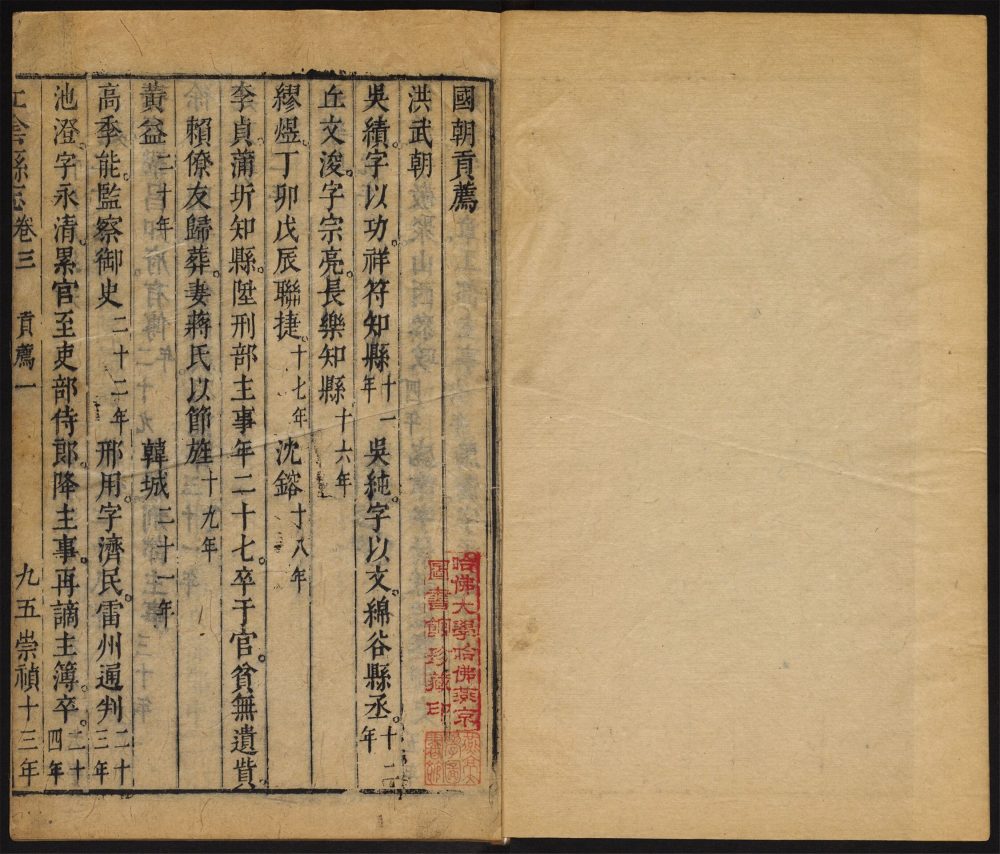 國朝貢薦
洪武朝
吳績字以功祥符知縣十一年 吳純字以文綿谷縣丞十二年
丘文浚字宗亮長樂知縣十六年
繆煜丁卯戊辰聯捷十七年 沈鎔十八年
李貞蒲圻知縣陞刑部主事年二十七卒于官貧無遺貲
賴僚友歸葬妻蔣氏以節旌十九年
黃益二十年 韓城二十一年
高季能監察御史二十二年 邢用字濟民雷州通判二十三年
池澄字永清累官至吏部侍郎降主事再謫主簿卒二十四年
縣志卷三 貢薦一 九五崇禎十三年
哈佛大學哈佛燕京
圖書館珍藏印